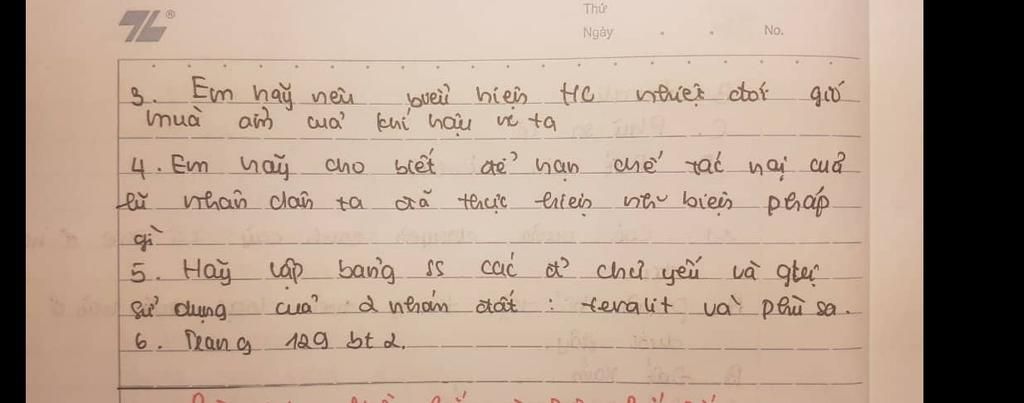 Thứ
Ngày . . No.
3. Em hãy nêu biểu hiện t/c nhiệt đới gió
mùa ẩm của khí hậu nc ta
4. Em hãy cho biết để hạn chế tác hại của
lũ nhân dân ta đã thực hiện như biện pháp
gì
5. Hãy lập bảng SS các đ² chủ yếu và gtrị
sử dụng của 2 nhóm đất : feralit và phù sa.
6. Trang 129 bt 2.